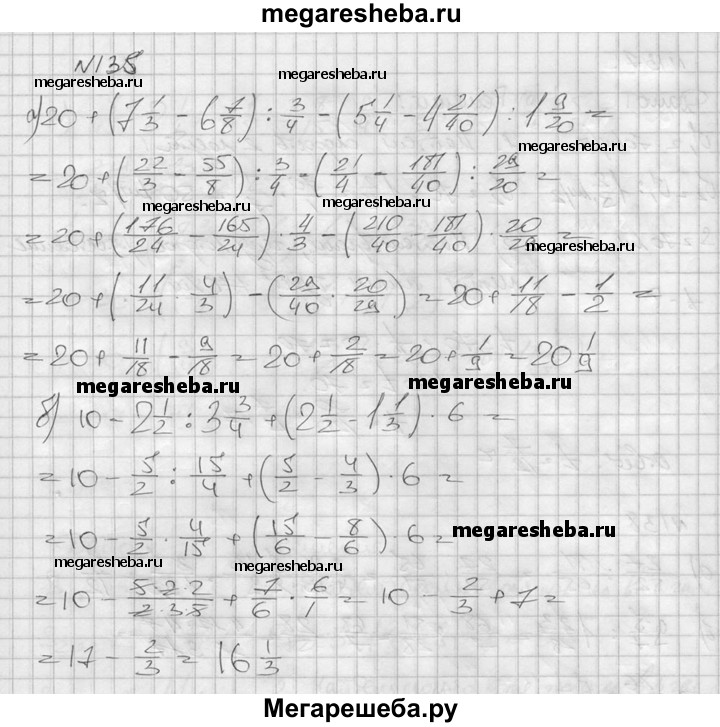 megaresheba.ru
N138
megaresheba.ru megaresheba.ru
а) 20 + (7 1/3 - 6 7/8) : 3/4 - (5 1/4 - 4 21/40) : 1 9/20 =
megaresheba.ru
= 20 + (22/3 - 55/8) : 3/4 - (21/4 - 181/40) : 29/20 =
megaresheba.ru megaresheba.ru
= 20 + (176/24 - 165/24) · 4/3 - (210/40 - 181/40) · 20/29 =
megaresheba.ru
= 20 + (11/24 · 4/3) - (29/40 · 20/29) = 20 + 11/18 - 1/2 =
= 20 + 11/18 - 9/18 = 20 + 2/18 = 20 + 1/9 = 20 1/9
megaresheba.ru megaresheba.ru
б) 10 - 2 1/2 : 3 3/4 + (2 1/2 - 1 1/3) · 6 =
= 10 - 5/2 : 15/4 + (5/2 - 4/3) · 6 =
= 10 - 5/2 · 4/15 + (15/6 - 8/6) · 6 =
megaresheba.ru
megaresheba.ru megaresheba.ru
= 10 - 5·2·2/2·3·5 + 7/6 · 6/1 = 10 - 2/3 + 7 =
= 17 - 2/3 = 16 1/3
Мегарешеба.ру